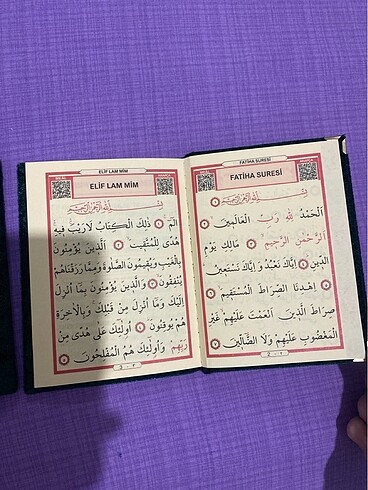 FATİHA SURESİ
FATİHA SURESİ
بِسْمِ اللّٰهِ الرَّحْمٰنِ الرَّحِيمِ
اَلْحَمْدُ لِلّٰهِ رَبِّ الْعَالَمِينَ
اَلرَّحْمٰنِ الرَّحِيمِ مَالِكِ يَوْمِ
الدِّينِ اِيَّاكَ نَعْبُدُ وَاِيَّاكَ نَسْتَعِينُ
اِهْدِنَا الصِّرَاطَ الْمُسْتَقِيمَ
صِرَاطَ الَّذِينَ اَنْعَمْتَ عَلَيْهِمْ غَيْرِ
الْمَغْضُوبِ عَلَيْهِمْ وَلَا الضَّالِّينَ
ELİF LAM MİM
ELİF LAM MİM
بِسْمِ اللّٰهِ الرَّحْمٰنِ الرَّحِيمِ
الٓمٓ ذٰلِكَ الْكِتَابُ لَا رَيْبَ فِيهِ
هُدًى لِلْمُتَّقِينَ اَلَّذِينَ يُؤْمِنُونَ
بِالْغَيْبِ وَيُقِيمُونَ الصَّلٰوةَ وَمِمَّا رَزَقْنَاهُمْ
يُنْفِقُونَ وَالَّذِينَ يُؤْمِنُونَ بِمَا اُنْزِلَ
اِلَيْكَ وَمَا اُنْزِلَ مِنْ قَبْلِكَ وَبِالْاٰخِرَةِ
هُمْ يُوقِنُونَ اُولٰئِكَ عَلٰى هُدًى مِنْ
رَبِّهِمْ وَاُولٰئِكَ هُمُ الْمُفْلِحُونَ